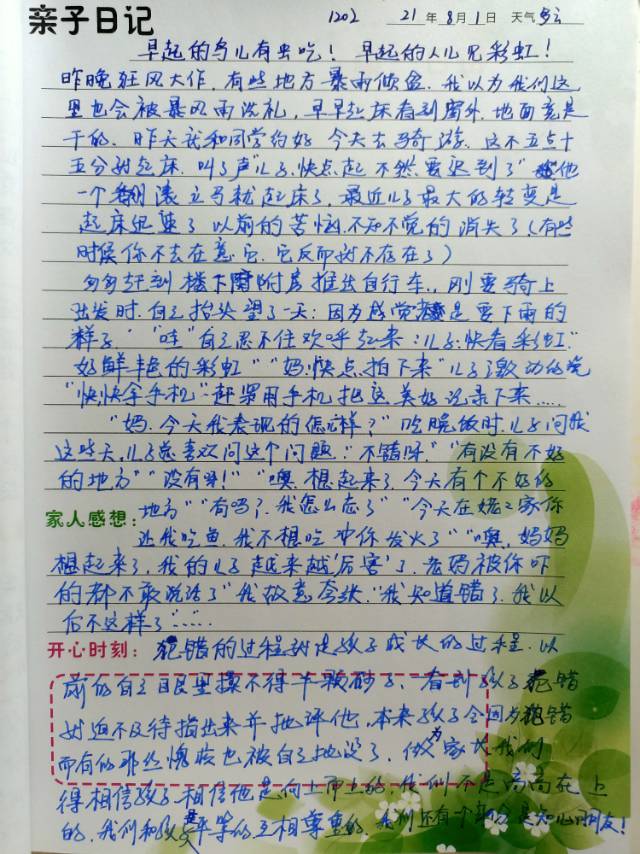 亲子日记 1202 21年8月1日 天气多云
早起的鸟儿有虫吃！早起的人儿见彩虹！
昨晚狂风大作，有些地方暴雨倾盆，我以为我们这
里也会被暴风雨洗礼，早早起床看到窗外，地面竟是
干的，昨天我和同学约好今天去骑游，这不五点十
五分就起床，叫了声"儿子，快点起不然要迟到了"他
一个翻滚立马就起床了，最近儿子最大的转变是
起床很快了以前的苦恼，不知不觉的消失了（有些
时候你不去在意它，它反而就不存在了）
匆匆赶到楼下附房推出自行车，刚要骑上
出发时，自己抬头望了一天：因为感觉是要下雨的
样子，"哇"自己忍不住欢呼起来：儿子：快看彩虹"
好鲜艳的彩虹""妈，快点拍下来"儿子激动的说
"快，快拿手机"赶紧用手机把这美好记录下来……
"妈，今天我表现的怎么样？"吃晚饭时，儿子问我
这些天，儿子总喜欢问这个问题："不错呀""有没有不好
的地方""没有呀！""噢，想起来了，今天有个不好的
家人感想：地方""有吗？我怎么忘了""今天在姥姥家你
让我吃鱼，我不想吃冲你发火了""噢，妈妈
想起来了，我的儿子越来越'厉害'了，老妈被你吓
的都不敢说话了"我故意夸张，"我知道错了，我以
后不这样了"……
开心时刻：犯错的过程就是孩子成长的过程，以
前的自己眼里揉不得半颗砂子，一看到孩子犯错
就迫不及待指出来并批评他，本来孩子会因为犯错
而有的那些愧疚也被自己抵没了，做为家长我们
得相信孩子相信他是向上而上的，我们不是高高在上
的，我们和孩子是平等的互相尊重的，我们还有一个身份是知心朋友！